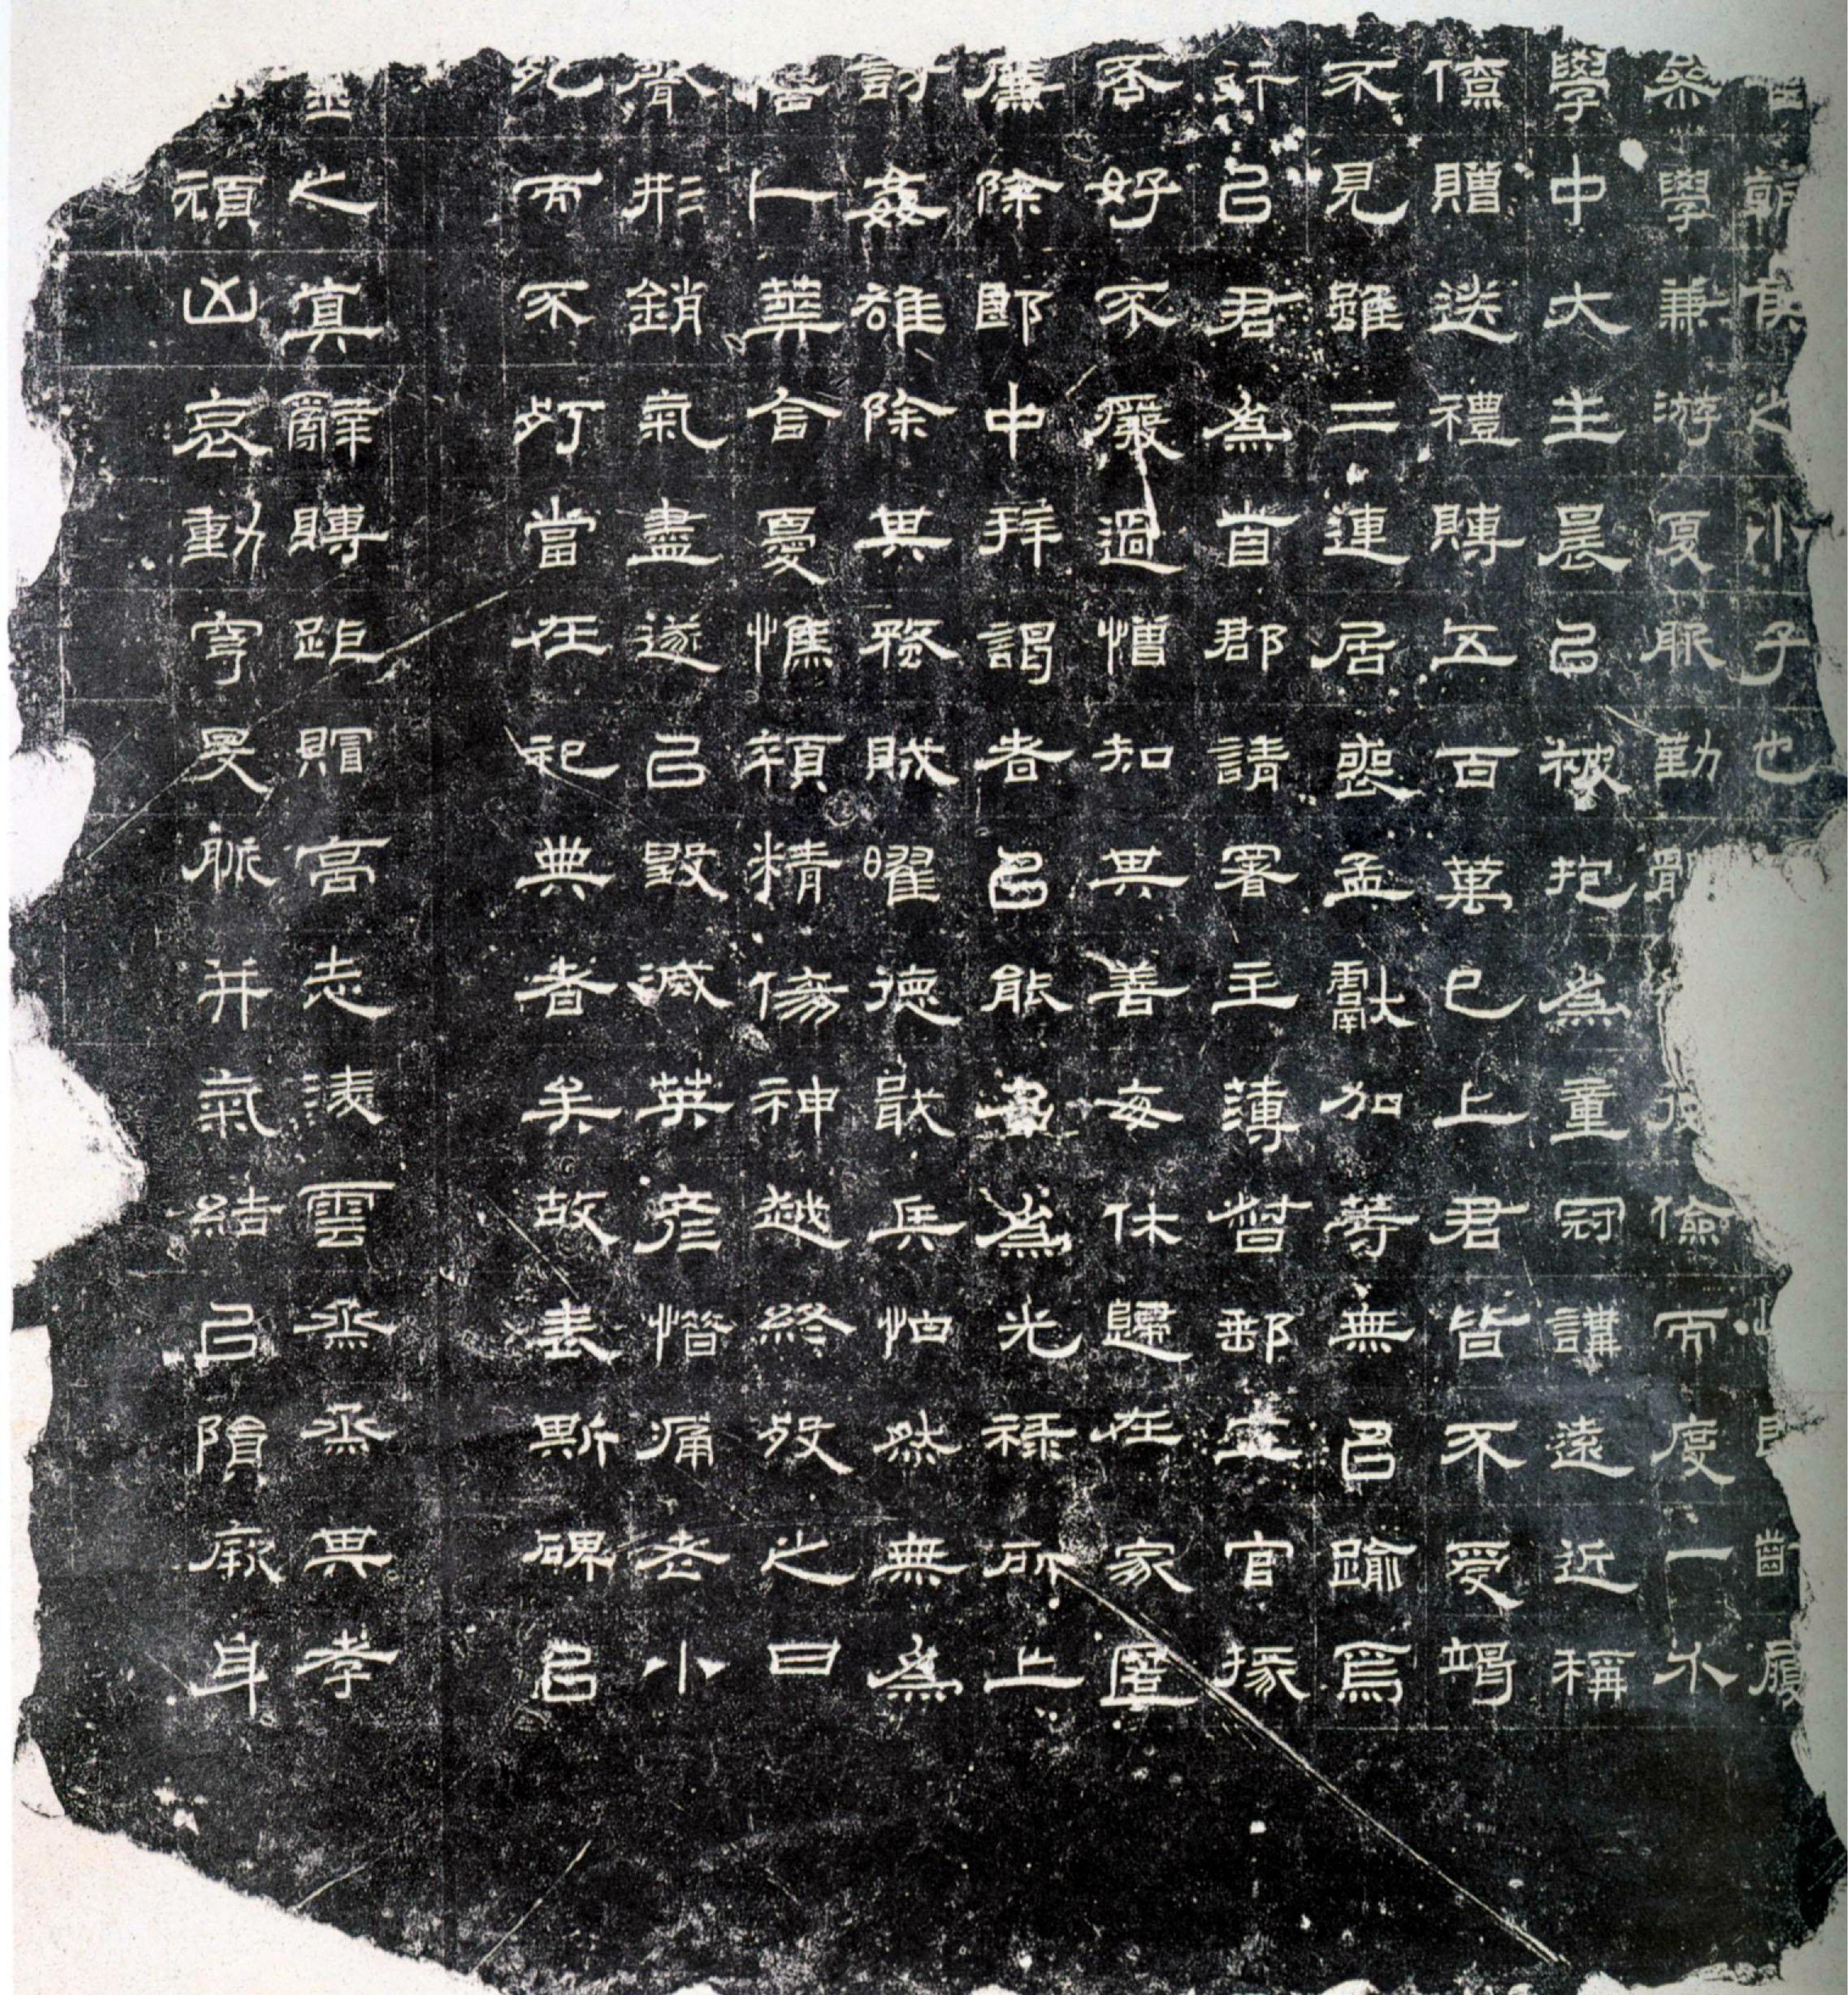 朝侯之小子也齒履
叅學兼游夏服勤體儉而度一介
學中大主晨以被抱爲童冠講遠近稱
僚贈送禮賻五百萬已上君皆不受竭
不見雖二連居喪孟獻加等無以踰焉
以君爲首郡請署主薄督郵五官掾
否好不廢過憎知其善每休歸在家匿
廉除郎中拜謁者以能名爲光祿所上
討姦雄除其蝥賊曜德戢兵怗然無爲
人華合憂憔顇精傷神越終歿之曰
脊形銷氣盡遂以毀滅英彥惜痛老小
死而不朽當在祀典者矣故表斯碑以
之真辭賻距賵高志淩雲烝烝其孝
凶哀動穹旻脈并氣結以隕厥身